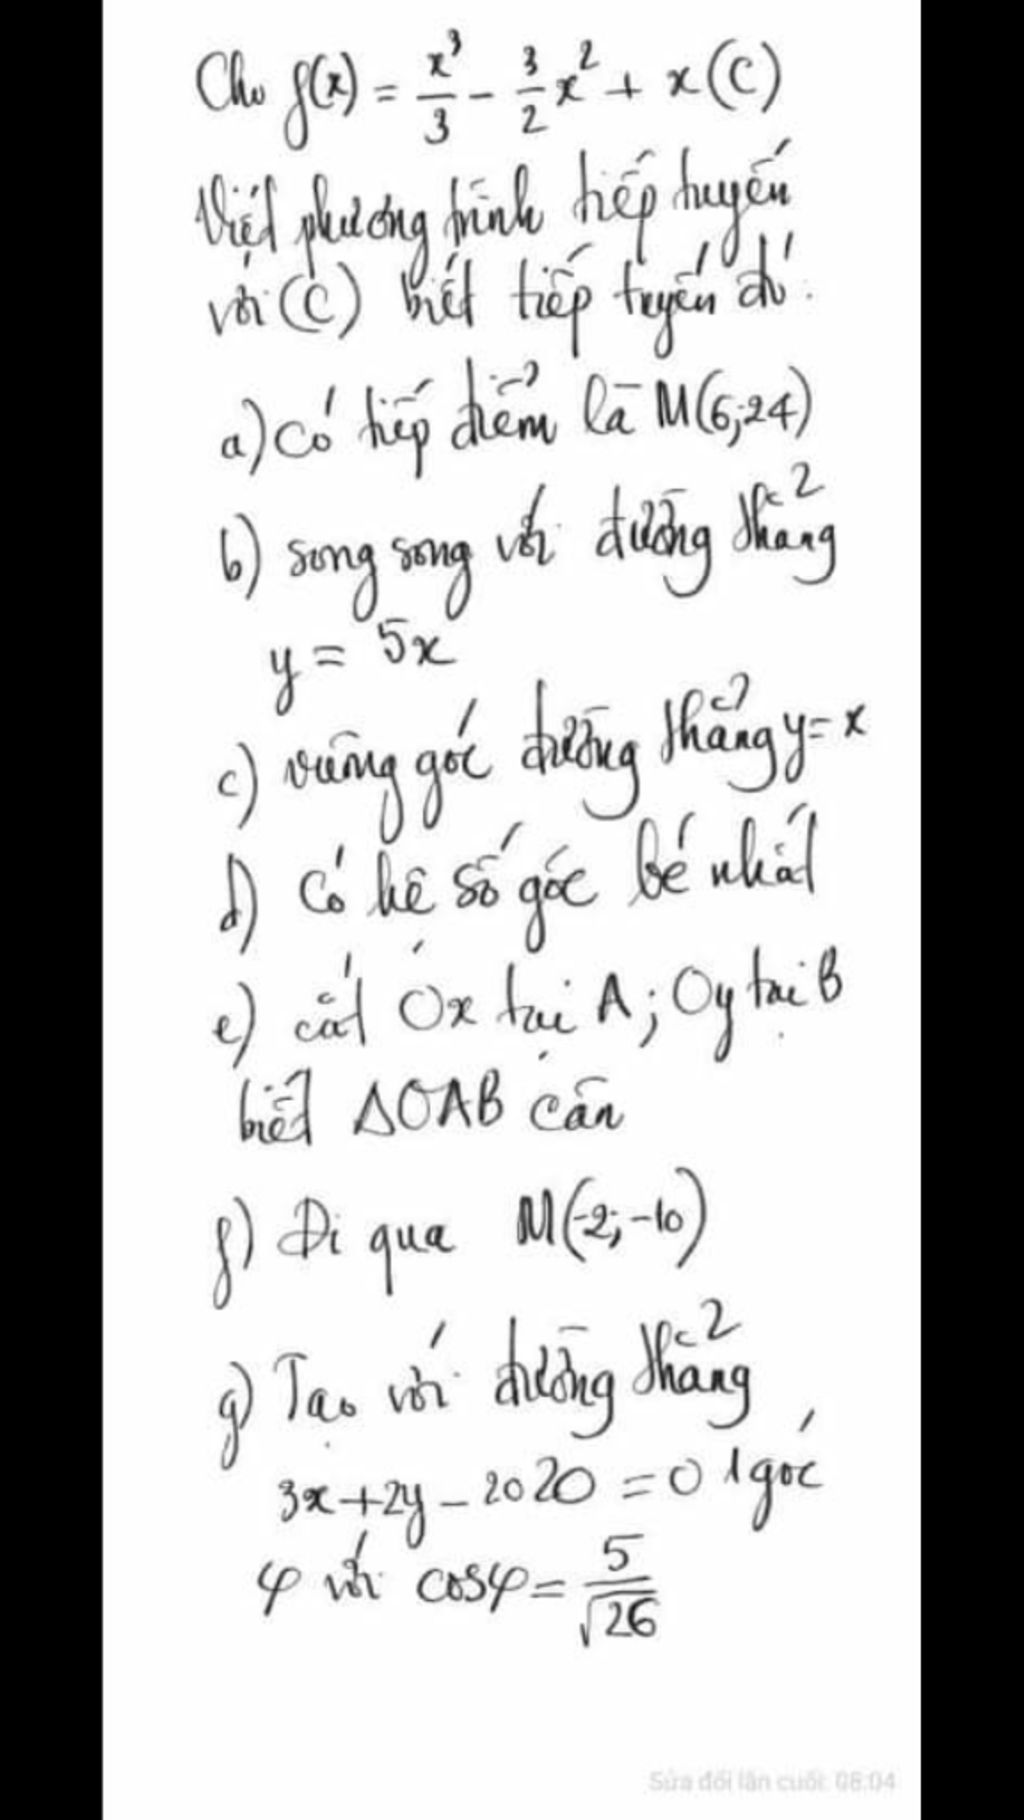 Cho f(x) = x³/3 - 3/2 x² + x (C)
Viết phương trình tiếp tuyến
với (C) biết tiếp tuyến đó:
a) Có tiếp điểm là M(6;24)
b) song song với đường thẳng
y = 5x
c) vuông góc đường thẳng y = x
d) Có hệ số góc bé nhất
e) cắt Ox tại A; Oy tại B
biết ΔOAB cân
f) Đi qua M(-2;-10)
g) Tạo với đường thẳng
3x + 2y - 2020 = 0 1 góc
φ với cosφ = 5/√26
Sửa đổi lần cuối: 08:04